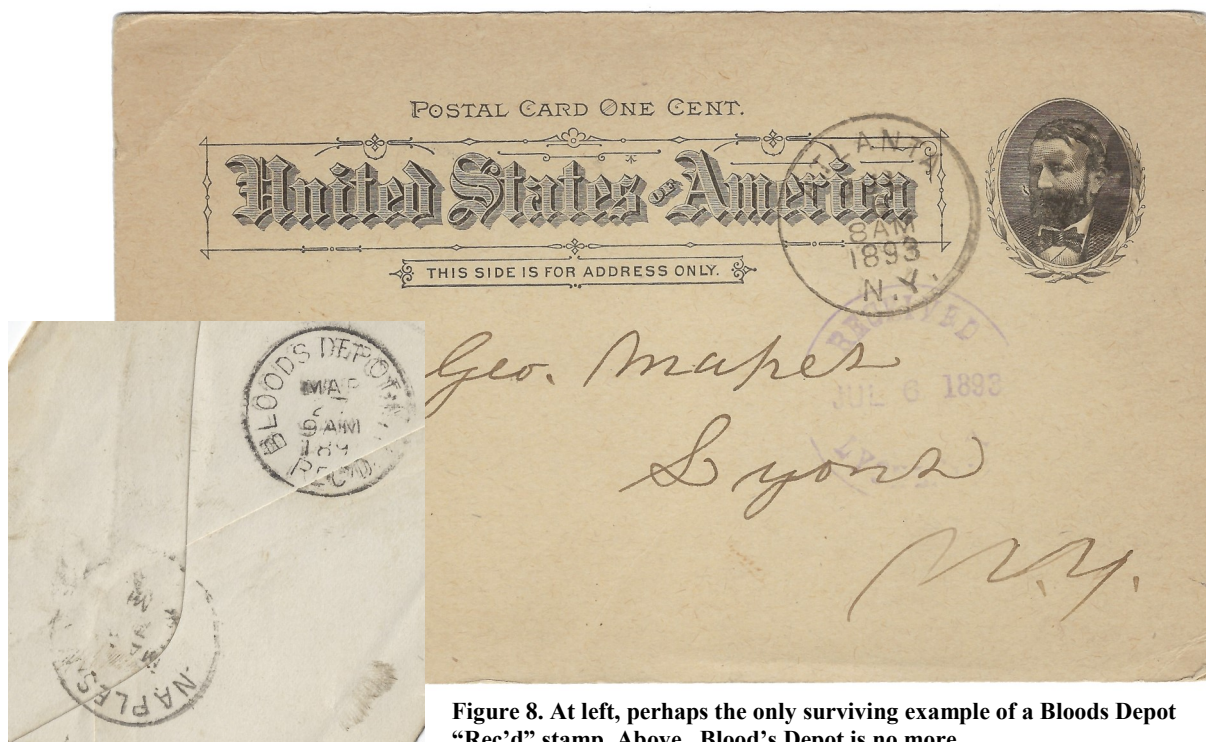 POSTAL CARD ONE CENT.
United States OF America
THIS SIDE IS FOR ADDRESS ONLY.
ATLANTA
8AM
1893
N.Y.
RECEIVED
JUL 6 1893
Geo. Mapes
Lyons
N.Y.
BLOODS DEPOT
MAR
9AM
189
REC'D.
NAPLES
Figure 8. At left, perhaps the only surviving example of a Bloods Depot
“Rec’d” stamp. Above, Blood’s Depot is no more